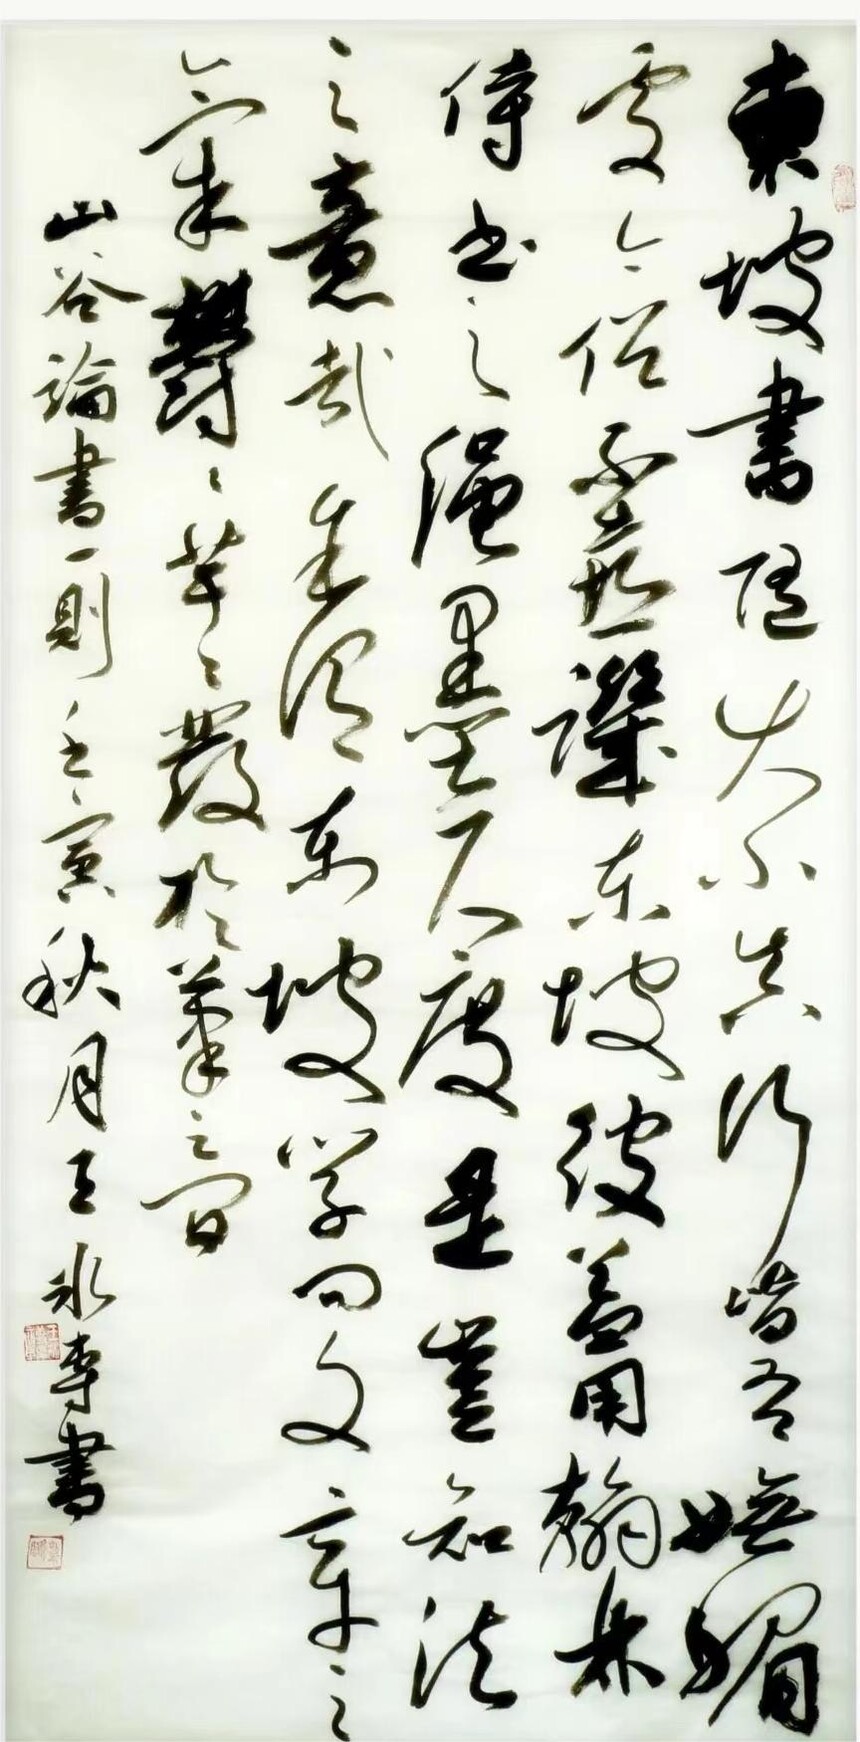 東坡書隨大小真行皆有嫵媚
處今俗譏東坡彼蓋用翰林
侍書之繩墨尺度是豈知法
之意哉余謂東坡學問文章之
氣鬱〻芊〻發於筆之間
山谷論書一則壬寅秋月王書